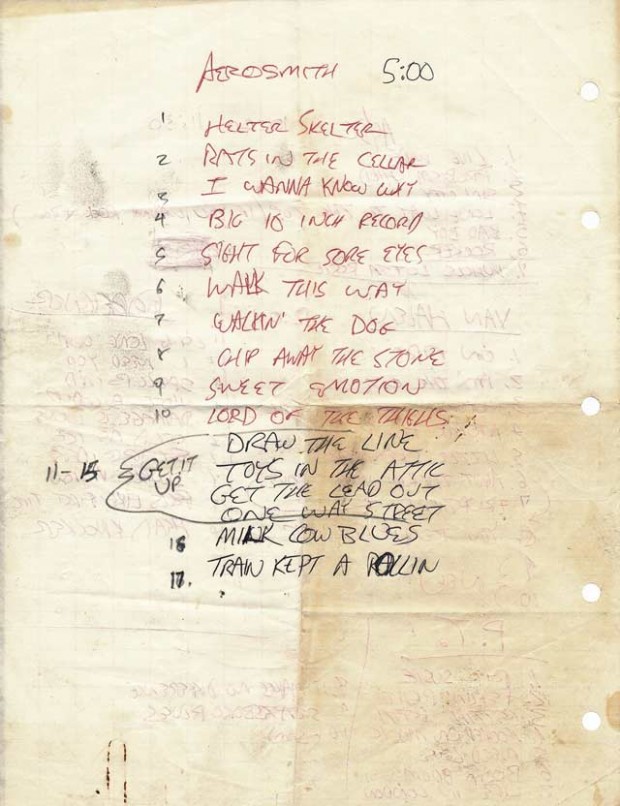 AEROSMITH 5:00
1 HELTER SKELTER
2 RATS IN THE CELLAR
3 I WANNA KNOW WHY
4 BIG 10 INCH RECORD
5 SIGHT FOR SORE EYES
6 WALK THIS WAY
7 WALKIN' THE DOG
8 CHIP AWAY THE STONE
9 SWEET EMOTION
10 LORD OF THE THIGHS
DRAW THE LINE
11-15 GET IT UP TOYS IN THE ATTIC
GET THE LEAD OUT
ONE WAY STREET
16 MINK COW BLUES
17. TRAIN KEPT A ROLLIN